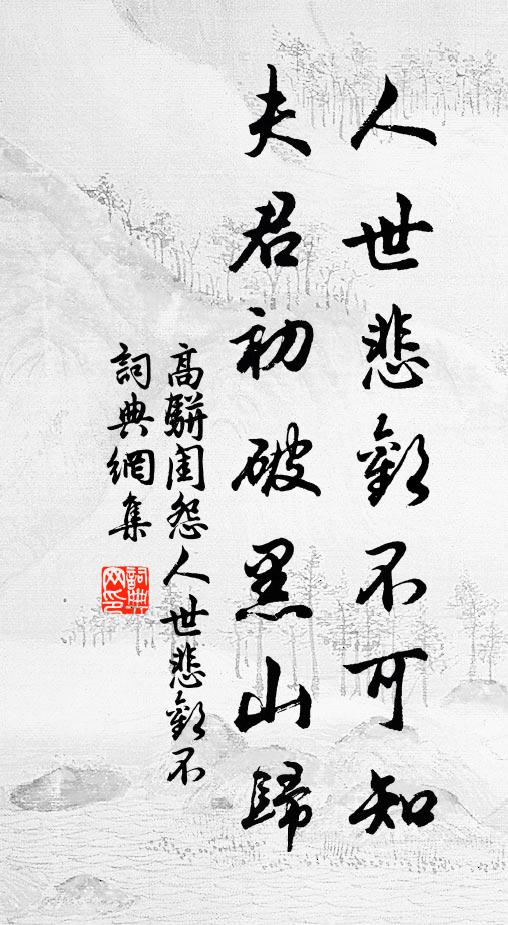 人世悲歡不可知
夫君初破黑山歸
高駢閨怨人世悲歡不
詞典網集
詞典
网印